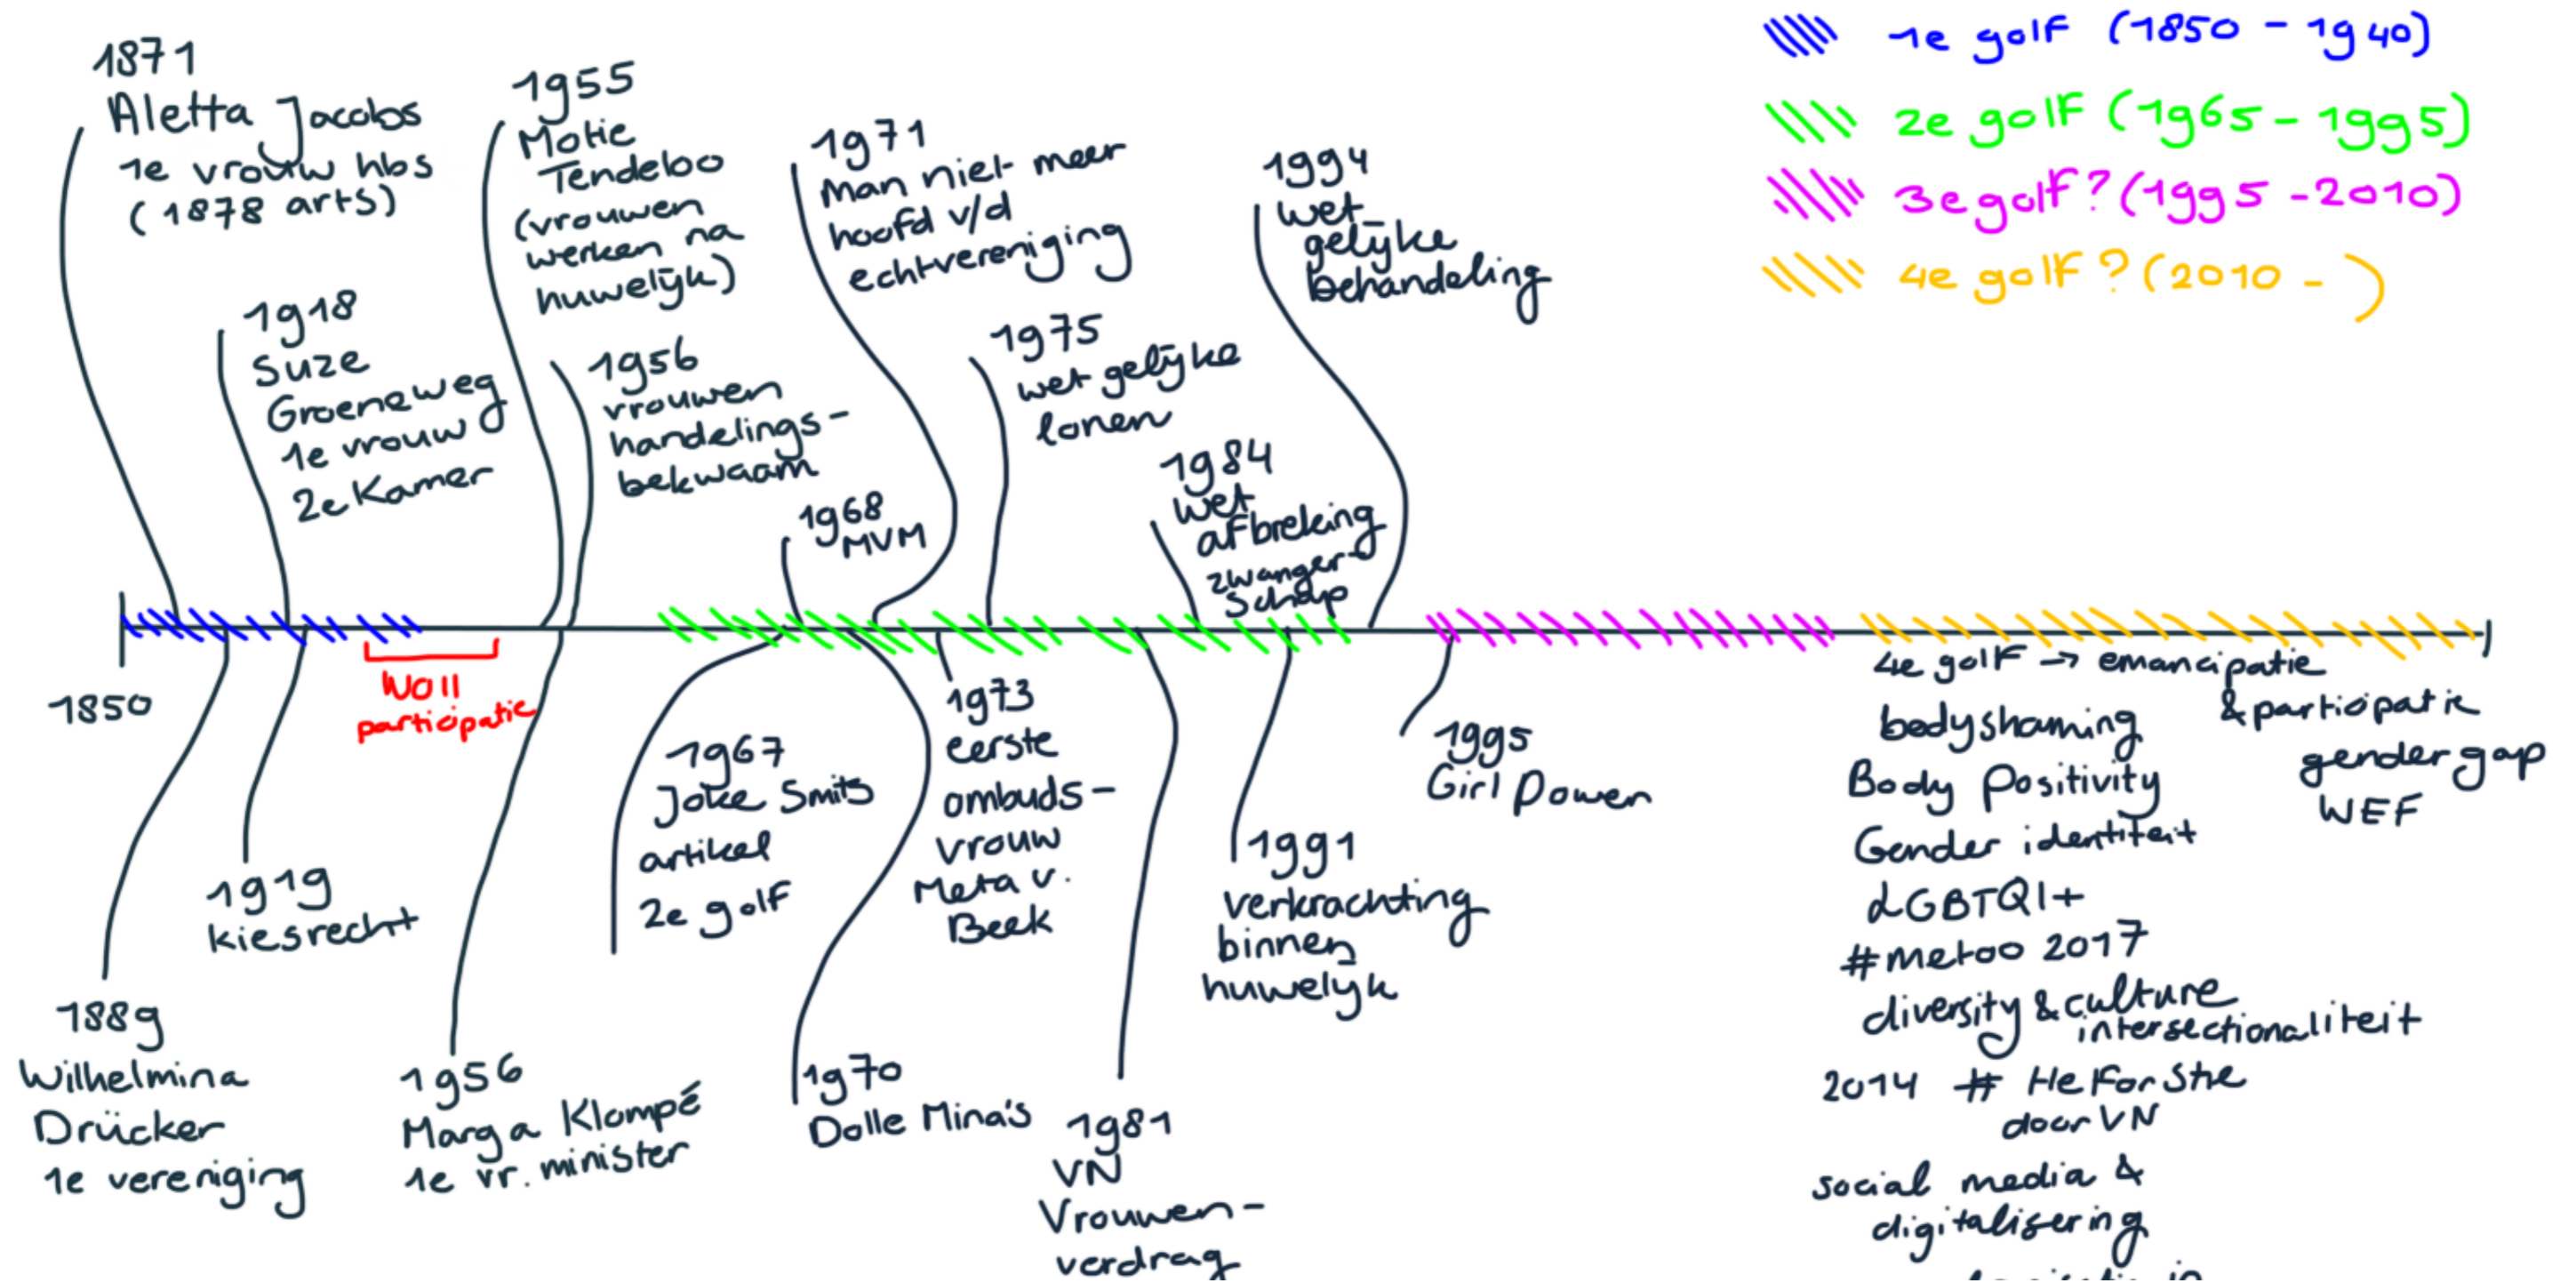 1871
Aletta Jacobs
1e vrouw hbs
(1878 arts)
1918
Suze
Groeneweg
1e vrouw
2e Kamer
1955
Motie
Tendeloo
(vrouwen
werken na
huwelijk)
1956
vrouwen
handelings-
bekwaam
1968
MVM
1971
man niet meer
hoofd v/d
echtvereniging
1975
wet gelijke
lonen
1984
wet
afbreking
zwanger-
schap
1994
wet
gelijke
behandeling
1e golf (1850 - 1940)
2e golf (1965 - 1995)
3e golf? (1995 - 2010)
4e golf? (2010 - )
1850
WOII
participatie
1889
Wilhelmina
Drücker
1e vereniging
1919
kiesrecht
1956
Marga Klompé
1e vr. minister
1967
Joke Smits
artikel
2e golf
1970
Dolle Mina's
1973
eerste
ombuds-
vrouw
Meta v.
Beek
1981
VN
Vrouwen-
verdrag
1991
verkrachting
binnen
huwelijk
1995
Girl Power
4e golf → emancipatie
& participatie
gender gap
WEF
bodyshaming
Body Positivity
Gender identiteit
LGBTQI+
#metoo 2017
diversity & culture
intersectionaliteit
2014 # HeForShe
door VN
social media &
digitalisering